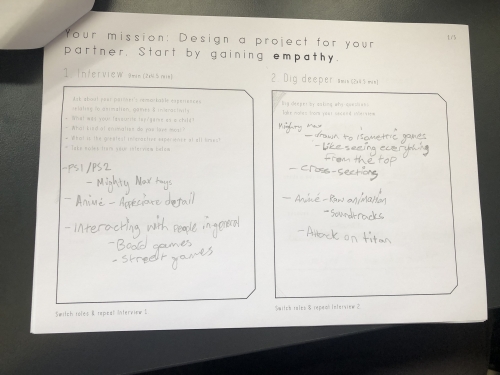 Your mission: Design a project for your
partner. Start by gaining empathy.
1/5
1. Interview 8min (2x4 min)
Ask about your partner's remarkable experiences
relating to animation, games & interactivity.
• What was your favourite toy/game as a child?
• What kind of animation do you love most?
• What is the greatest interactive experience of all times?
• Take notes from your interview below.
-PS1/PS2
- Mighty Max toys
- Animé - Appreciate detail
- Interacting with people in general
- Board games
- Street games
Switch roles & repeat Interview 1.
2 Dig deeper 6min (2x3 min)
Dig deeper by asking why questions.
Take notes from your second interview.
Mighty Max
- drawn to isometric games
- Like seeing everything
from the top
- Cross-sections
- Animé - Raw animation
- Soundtracks
- Attack on titan
Switch roles & repeat Interview 2.